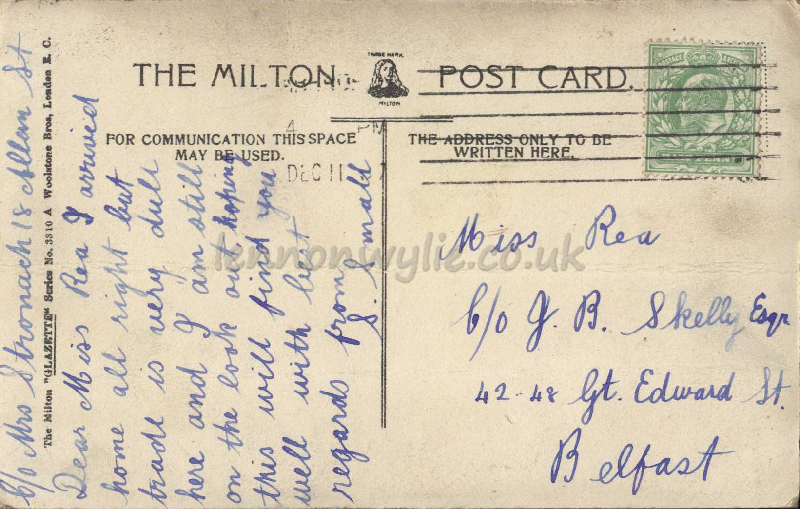 THE MILTON POST CARD.
TRADE MARK
MILTON
FOR COMMUNICATION THIS SPACE
MAY BE USED.
THE ADDRESS ONLY TO BE
WRITTEN HERE.
4 PM
DEC 11
The Milton "GLAZETTE" Series No. 3310 A Woolstone Bros, London E. C.
c/o Mrs Stronach 18 Allan St
Dear Miss Rea I arrived
home all right but
trade is very dull
here and I am still
on the look out hoping
this will find you
well with best
regards from
S. Smald
Miss Rea
c/o J. B. Skelly Esqr
42-48 Gt. Edward St.
Belfast
lennonwylie.co.uk